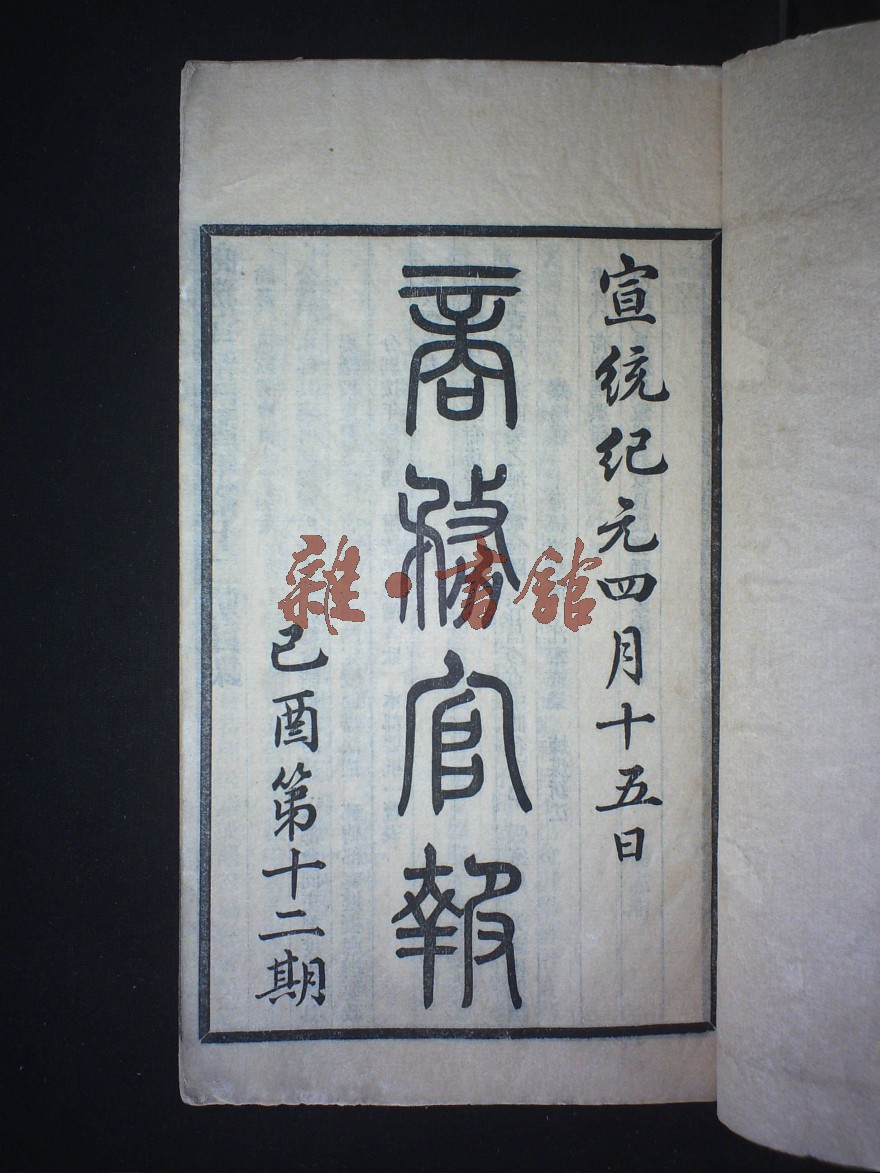 宣統紀元四月十五日
商務官報
己酉第十二期
雜·書館